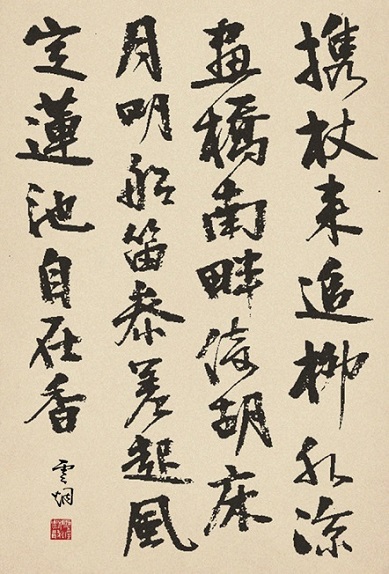 携杖来追柳外涼
畫橋南畔倚胡床
月明船笛參差起風
定蓮池自在香
雲